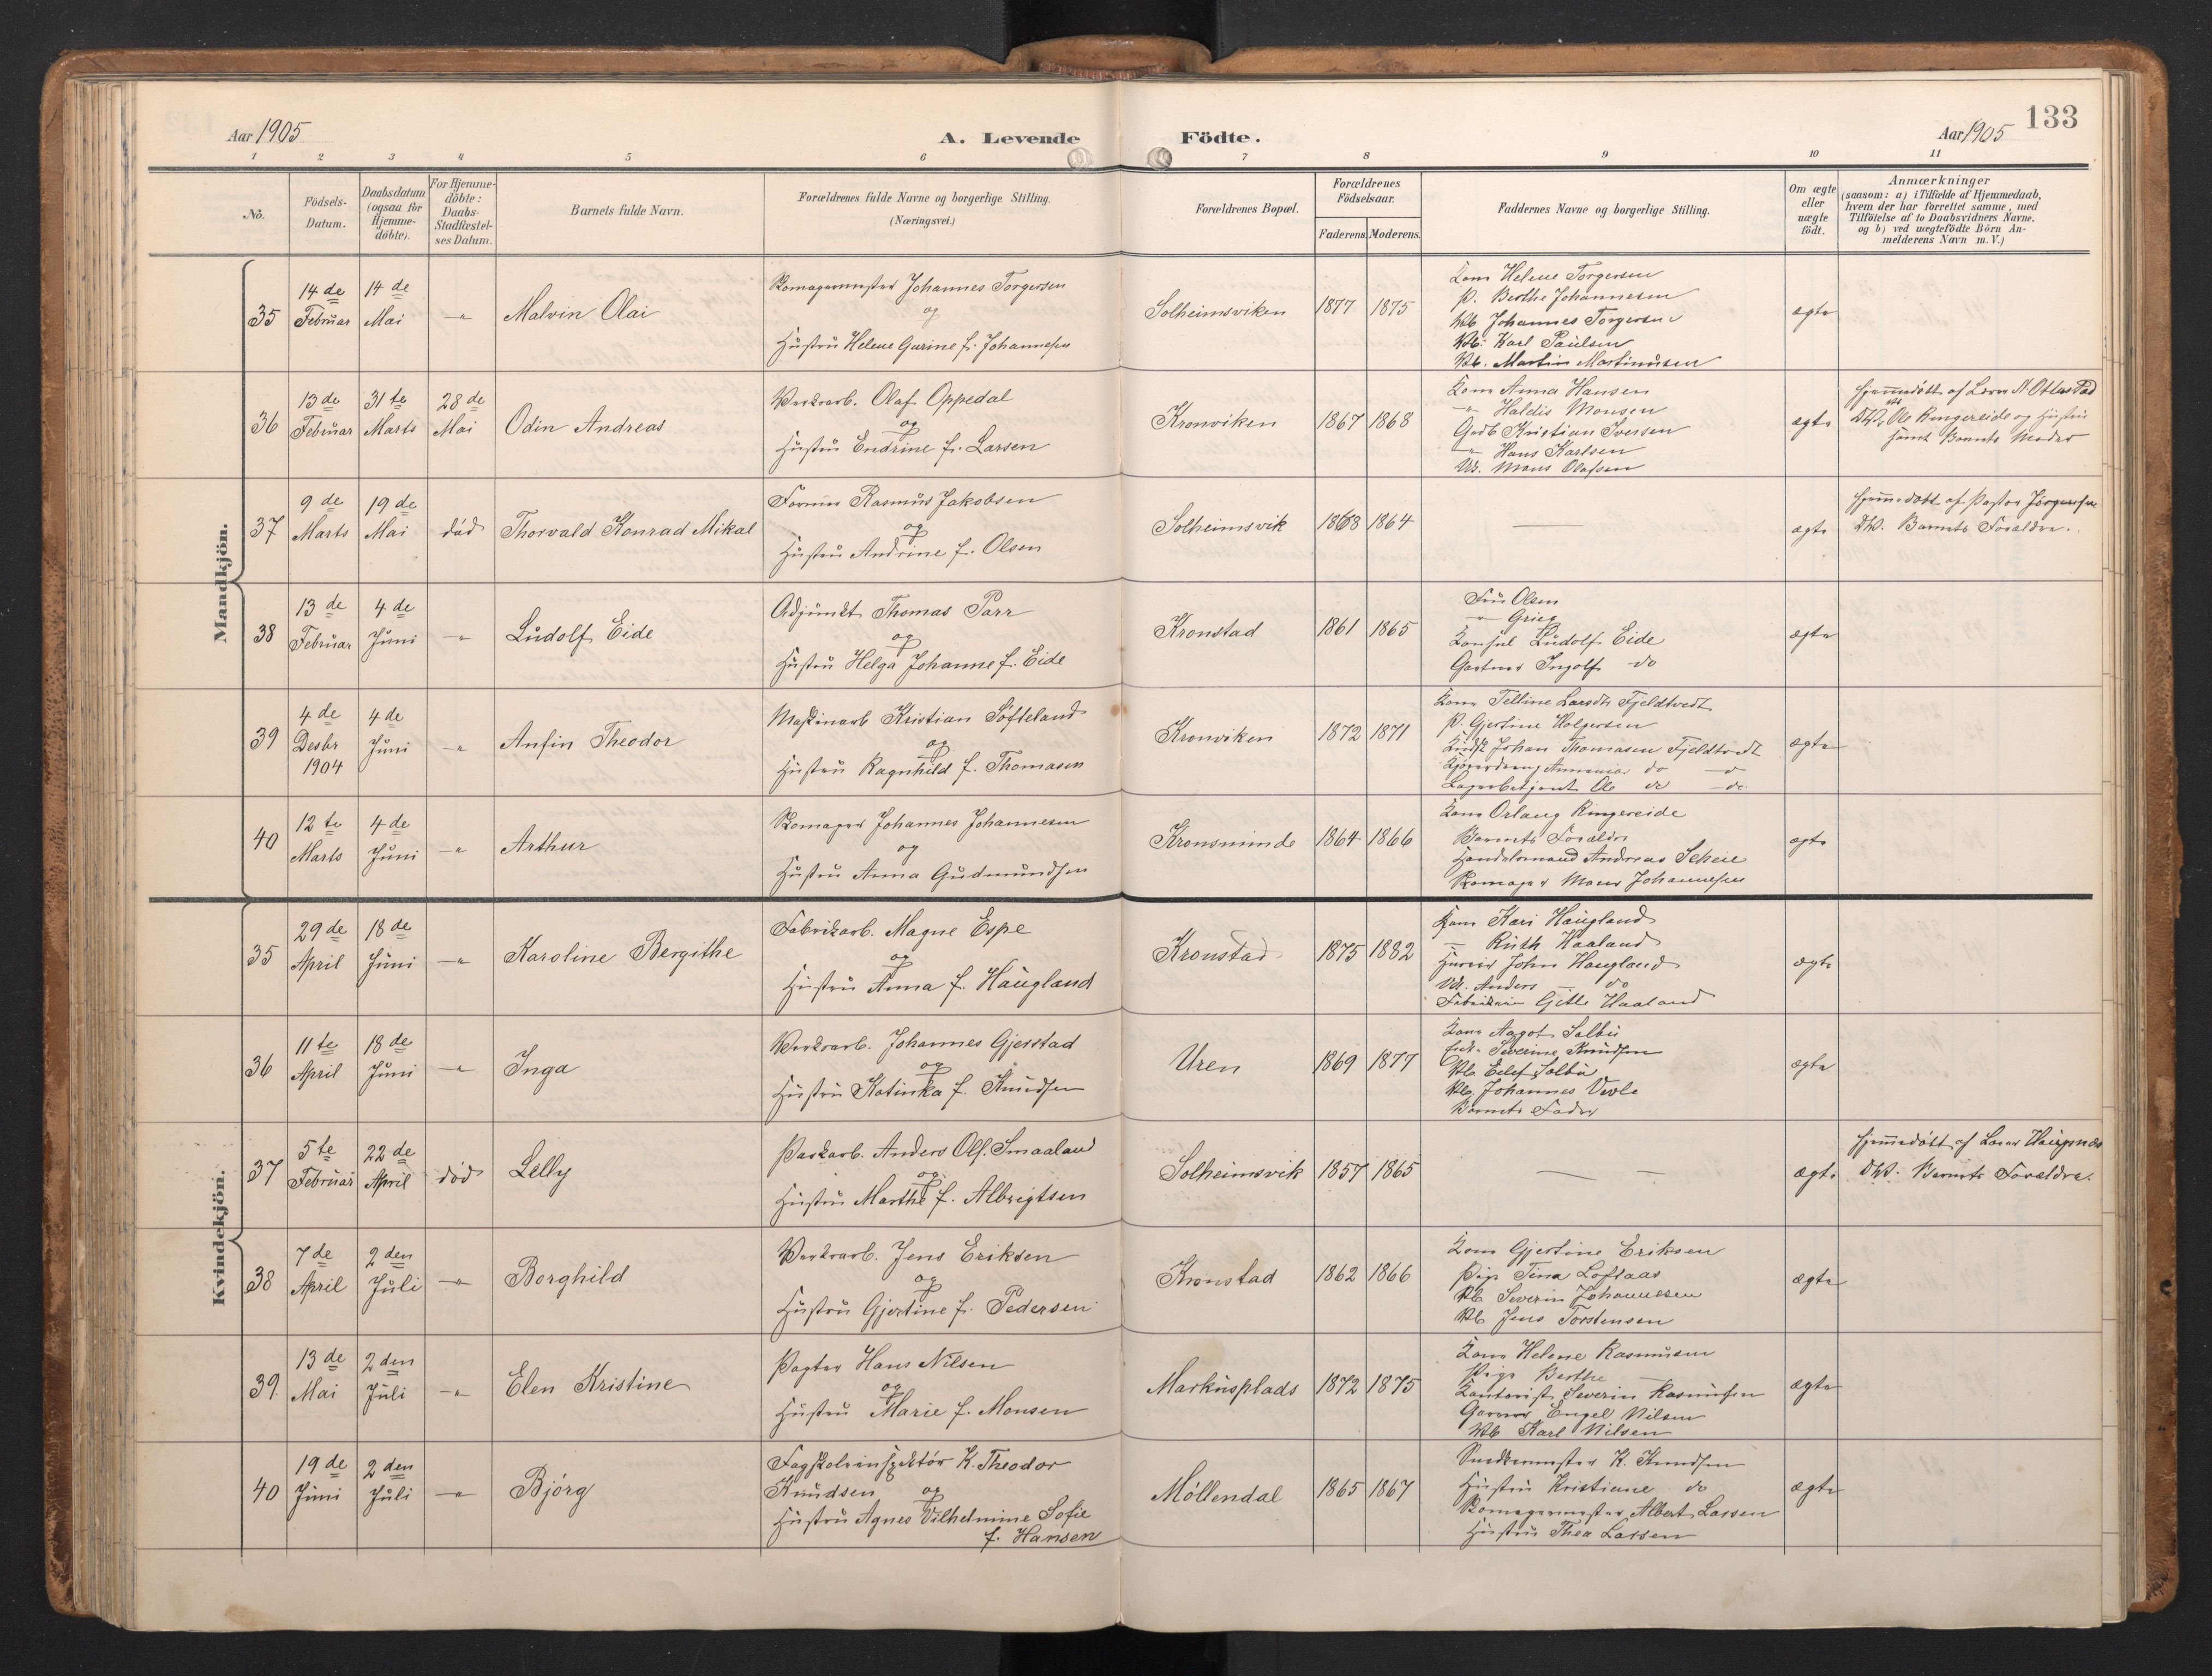 133
Aar 1905
A. Levende Födte.
Aar 1905
1 2 3 4 5 6 7 8 9 10 11
No.
Födsels-
Datum.
Daabsdatum
(ogsaa for
Hjemme-
döbte).
For Hjemme-
döbte:
Daabs-
Stadfæstel-
ses Datum.
Barnets fulde Navn.
Forældrenes fulde Navne og borgerlige Stilling.
(Næringsvei.)
Forældrenes Bopæl.
Forældrenes
Födselsaar.
Faderens. Moderens.
Faddernes Navne og borgerlige Stilling.
Om ægte
eller
uægte
födt.
Anmærkninger
(saasom: a) i Tilfælde af Hjemmedaab,
hvem der har forrettet samme, med
Tilföielse af to Daabsvidners Navne,
og b) ved uægtefödte Börn An-
melderens Navn m. V.)
Mandkjön.
35
14 de
Februar
14 de
Mai
-"-
Malvin Olai
Skomagermester Johannes Torgersen
og
Hustru Helene Gurine f. Johannesen
Solheimsviken
1877
1875
Kone Helene Torgersen
P. Berthe Johannesen
Vb Johannes Torgersen
Vb. Karl Paulsen
Vb. Martin Martinusen
ægte
36
13 de
Februar
31 te
Marts
28 de
Mai
Odin Andreas
Verksarb. Olaf Oppedal
og
Hustru Endrine f. Larsen
Kronviken
1867
1868
Kone Anna Hansen
-"- Haldis Monsen
Gadb Kristian Iversen
-"- Hans Karlsen
Mons Olafsen
ægte
Hjemmedöbt af Lærer N. Ottarstad
DV. Ole Ringereide og Hustru
samt Barnets Moder
37
9 de
Marts
19 de
Mai
död
Thorvald Konrad Mikal
Former Rasmus Jakobsen
og
Hustru Andrine f. Olsen
Solheimsvik
1868
1864
—
ægte
Hjemmedöbt af Pastor Jörgensen
DV. Barnets Forældre.
38
13 de
Februar
4 de
Juni
-"-
Ludolf Eide
Adjunkt Thomas Parr
og
Hustru Helga Johanne f. Eide
Kronstad
1861
1865
Fru Olsen
-"- Grieg
Konsul Ludolf Eide
Gartner Ingolf do
ægte
39
4 de
Desbr
1904
4 de
Juni
-"-
Anfin Theodor
Maskinarb Kristian Söfteland
og
Hustru Ragnhild f. Thomasen
Kronviken
1872
1871
Kone Telline Larsdtr Fjeldtvedt
P. Gjertine Holgersen
Johan Thomasen Fjeldtvedt
Kjöredreng do
Lagerbetjent Ole do do
ægte
40
12 te
Marts
4 de
Juni
-"-
Arthur
Skomager Johannes Johannesen
og
Hustru Anna Gudmundsen
Kronsminde
1864
1866
Kone Orlaug Ringereide
Barnets Forældre
Handelsmand Andreas Scheie
Skomager Mons Johannesen
ægte
Kvindekjön.
35
29 de
April
18 de
Juni
-"-
Karoline Bergithe
Fabrikarb. Magne Espe
og
Hustru Anna f. Haugland
Kronstad
1875
1882
Kone Kari Haugland
-"- Ruth Haaland
John Haugland
Anders — do
Gitle Haaland
ægte
36
11 te
April
18 de
Juni
-"-
Inga
Verksarb. Johannes Gjerstad
og
Hustru Katinka f. Knudsen
Uren
1869
1877
Kone Aagot Solbu
Severine Knudsen
Vb Eelef Solbu
Vb Johannes Vevle
Barnets Fader
ægte
37
5 te
Februar
22 de
April
död
Lelly
Parkarb. Anders Olf. Smaaland
og
Hustru Marthe f. Albrigtsen
Solheimsvik
1857
1865
— —
ægte
Hjemmedöbt af Lærer Haugsnæs
DV. Barnets Forældre.
38
7 de
April
2 den
Juli
-"-
Borghild
Verksarb. Jens Eriksen
og
Hustru Gjertine f. Pedersen
Kronstad
1862
1866
Kone Gjertine Eriksen
Pige Tina Loftaas
Vb Severin Johannesen
Vb Jens Torstensen
ægte
39.
13 de
Mai
2 den
Juli
-"-
Elen Kristine
Pagter Hans Nilsen
og
Hustru Marie f. Monsen
Markusplads
1872
1875
Kone Helene Rasmusen
Pige Berthe —
Kontorist Severin Rasmusen
Garver Engel Nilsen
Vb Karl Nilsen
ægte
40
19 de
Juni
2 den
Juli
-"-
Bjórg
Fagskoleinspektör K. Theodor
Knudsen og
Hustru Agnes Vilhelmine Sofie
f. Hansen
Möllendal
1865
1867
Snedkermester K. Knudsen
Hustru Kristiane do
Skomagermester Albert Larsen
Hustru Thea Larsen
ægte